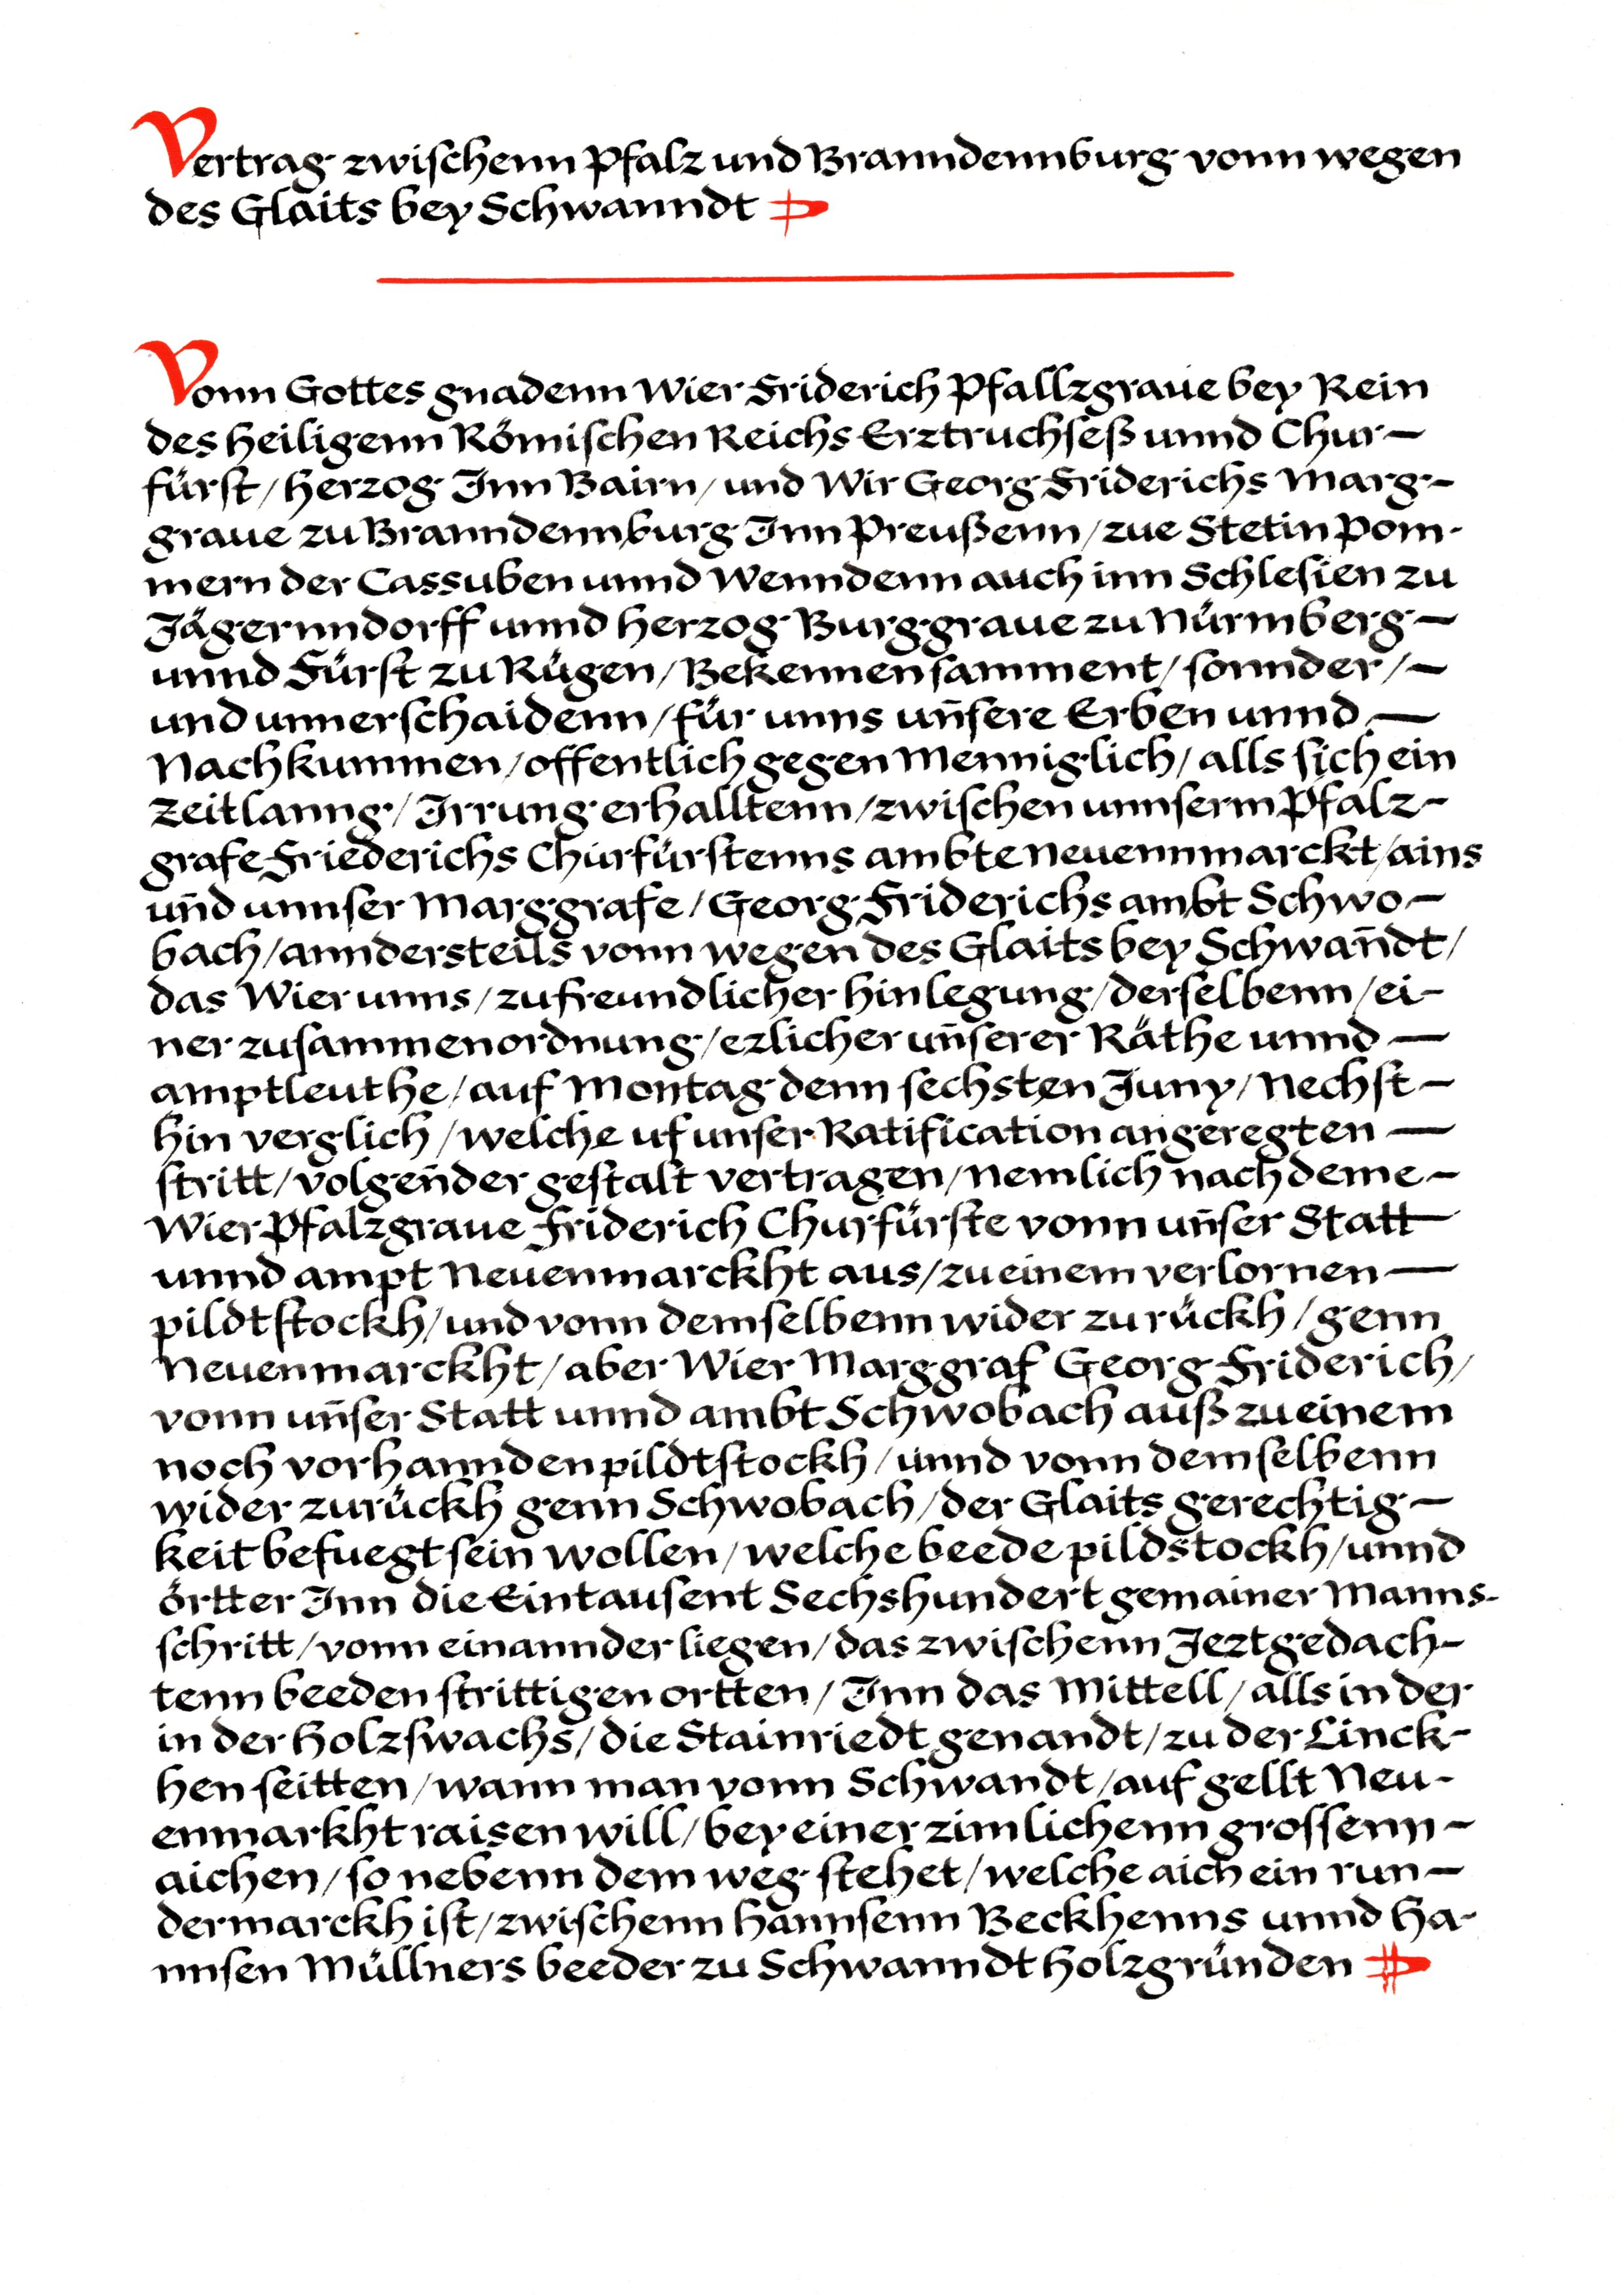 Vertrag zwischenn Pfalz und Branndennburg vonn wegen
des Glaits bey Schwanndt
Vonn Gottes gnadenn Wier Friderich Pfallzgraue bey Rein
des heiligenn Römischen Reichs Erztruchseß unnd Chur-
fürst/herzog Inn Bairn/und Wir Georg Friderichs Marg-
graue zu Branndennburg Inn Preußenn/zue Stetin Pom-
mern der Cassuben unnd Wenndenn auch inn Schlesien zu
Jägernndorff unnd herzog Burggraue zu Nürmberg-
unnd Fürst zu Rügen/Bekennen samment/sonnder/-
und unnerschaidenn/für unns uñsere Erben unnd-
Nachkummen/offentlich gegen Menniglich/alls sich ein
Zeitlanng/Irrung erhalltenn/zwischen unnserm Pfalz-
grafe Friederichs Churfürstenns ambte Neuennmarckt/ains
uñd unnser Marggrafe/Georg Friderichs ambt Schwo-
bach/anndersteils vonn wegen des Glaits bey Schwañdt/
das Wier unns/zufreundlicher hinlegung/derselbenn/ei-
ner zusammenordnung/ezlicher uñserer Räthe unnd-
amptleuthe/auf Montag denn sechsten Juny/Nechst-
hin verglich/welche uf unser Ratification angeregten-
stritt/volgeñder gestalt vertragen/nemlich nachdeme-
Wier Pfalzgraue Friderich Churfürste vonn uñser Statt-
unnd ampt Neuenmarckht aus/zu einem verlornen-
pildtstockh/und vonn demselbenn wider zurückh/genn
Neuenmarckht/aber Wier Marggraf Georg Friderich/
vonn uñser Statt unnd ambt Schwobach auß zu einem
noch vorhannden pildtstockh/unnd vonn demselbenn
wider zurückh genn Schwobach/der Glaits gerechtig-
keit befuegt sein wollen/welche beede pildstockh/unnd
örtter Inn die Eintausent Sechshundert gemainer Manns-
schritt/vonn einannder liegen/das zwischenn Jeztgedach-
tenn beeden strittigen ortten/Inn das Mittell/alls in der
in der holzswachs/die Stainriedt genandt/zu der Linck-
hen seitten/wann man vonn Schwandt/auf gellt Neu-
enmarkht raisen will/bey einer zimlichenn grossenn-
aichen/so nebenn dem weg stehet/welche aich ein run-
dermarckh ist/zwischenn hannsenn Beckhenns unnd Ha-
nnsen Müllners beeder zu Schwanndt holzgründen